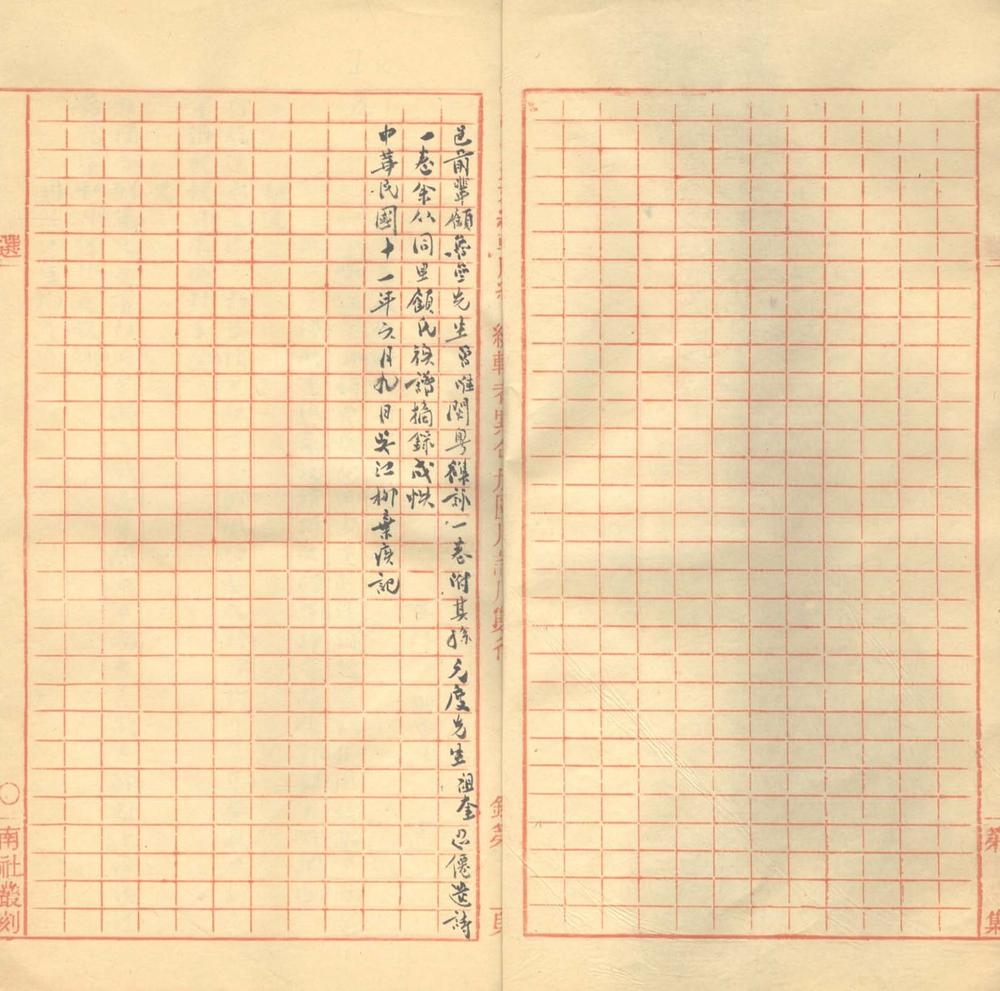 第 集
邑前輩顧先生曾唯閩粵襍詠一卷附其孫元度先生祖奎僊遺詩
一卷余从同里顧氏族譜摘錄成帙
中華民國十一年六月九日吳江柳棄疾記
選 〇 南社叢刻